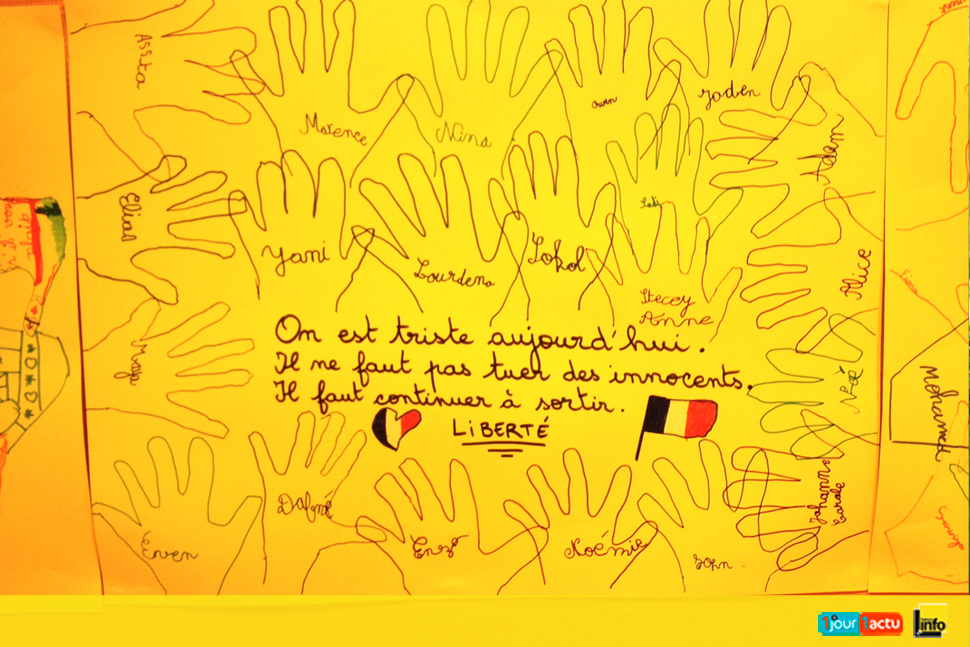 Assta
Marence
Nina
Owen
Jaden
Adam
Elias
Yani
Lourdena
Sokol
Stecey
Anne
Alice
On est triste aujourd'hui.
Il ne faut pas tuer des innocents.
Il faut continuer à sortir.
LIBERTÉ
Mohamed
Dafné
Enzo
Noémie
John
Johanna
1jour1actu
L'info